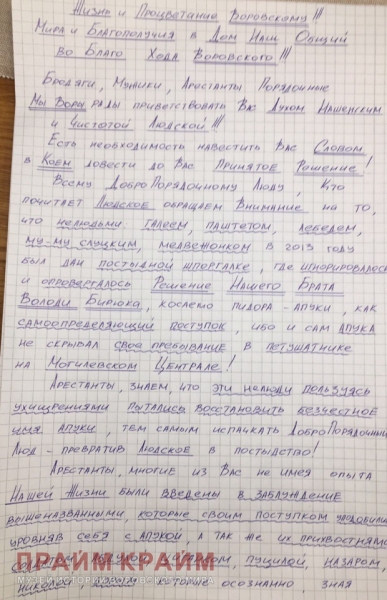 Жизни и Процветания Воровскому !!!
Мира и Благополучия в Дом Наш Общий
Во Благо Хода Воровского !!!
Бродяги, Мужики, Арестанты Порядочные
Мы Воры, рады приветствовать Вас Духом Нашенским
и Чистотой Людской !!!
Есть необходимость навестить Вас Словом
в Коем довести до Вас Принятое Решение !
Всему ДоброПорядочному Люду, Кто
почитает Людское обращаем Внимание на то,
что нелюдьми галеем, паштетом, лебедом,
му-му слуцким, медвежонком в 2013 году
был дан постыдной шпаргалке, где игнорировалось
и опровергалось Решение Нашего Брата
Володи Бирюка, косаемо пидора-апуки, как
самоопределяющий поступок, ибо и сам апука
не скрывал своё пребывание в петушатнике
на Могилевском Централе !
Арестанты, знаем, что эти нелюди пользуясь
ухищрениями пытались восстановить безчестное
имя апуки, тем самым испачкать ДоброПорядочный
Люд - превратив Людское в постыдство !
Арестанты, многие из Вас не имея опыта
Нашей Жизни были введены в заблуждение
вышеназванными, которые своим поступком уподобились
уровняв себя с апукой, а так же их прихвостнями
пуцилой, назаром,
которые осознанно, зная
ПРАЙМ КРАЙМ
МУЗЕЙ ИСТОРИИ ВОРОВСКОГО МИРА